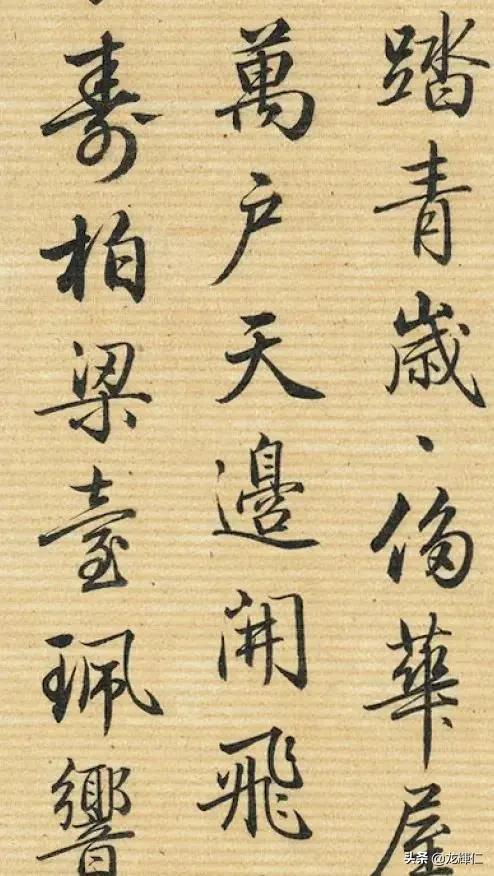 踏青歲、華屋
萬户天邊開飛
壽柏梁臺珮響
头条 @龙輝仁